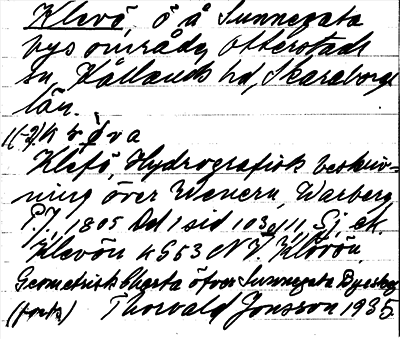 Klevö, ö å Sunnegata
bys område, Otterstads
sn, Kållands hd, Skaraborgs
län.
Klefö, Hydrografisk beskriv-
ning över Wenern, Warberg
P. J. 1805 Del 1 sid 103
Klevön 4553 NV. Klövön
Geometrisk Charta öfver Sunnegata
Thorvald Jonsson 1935